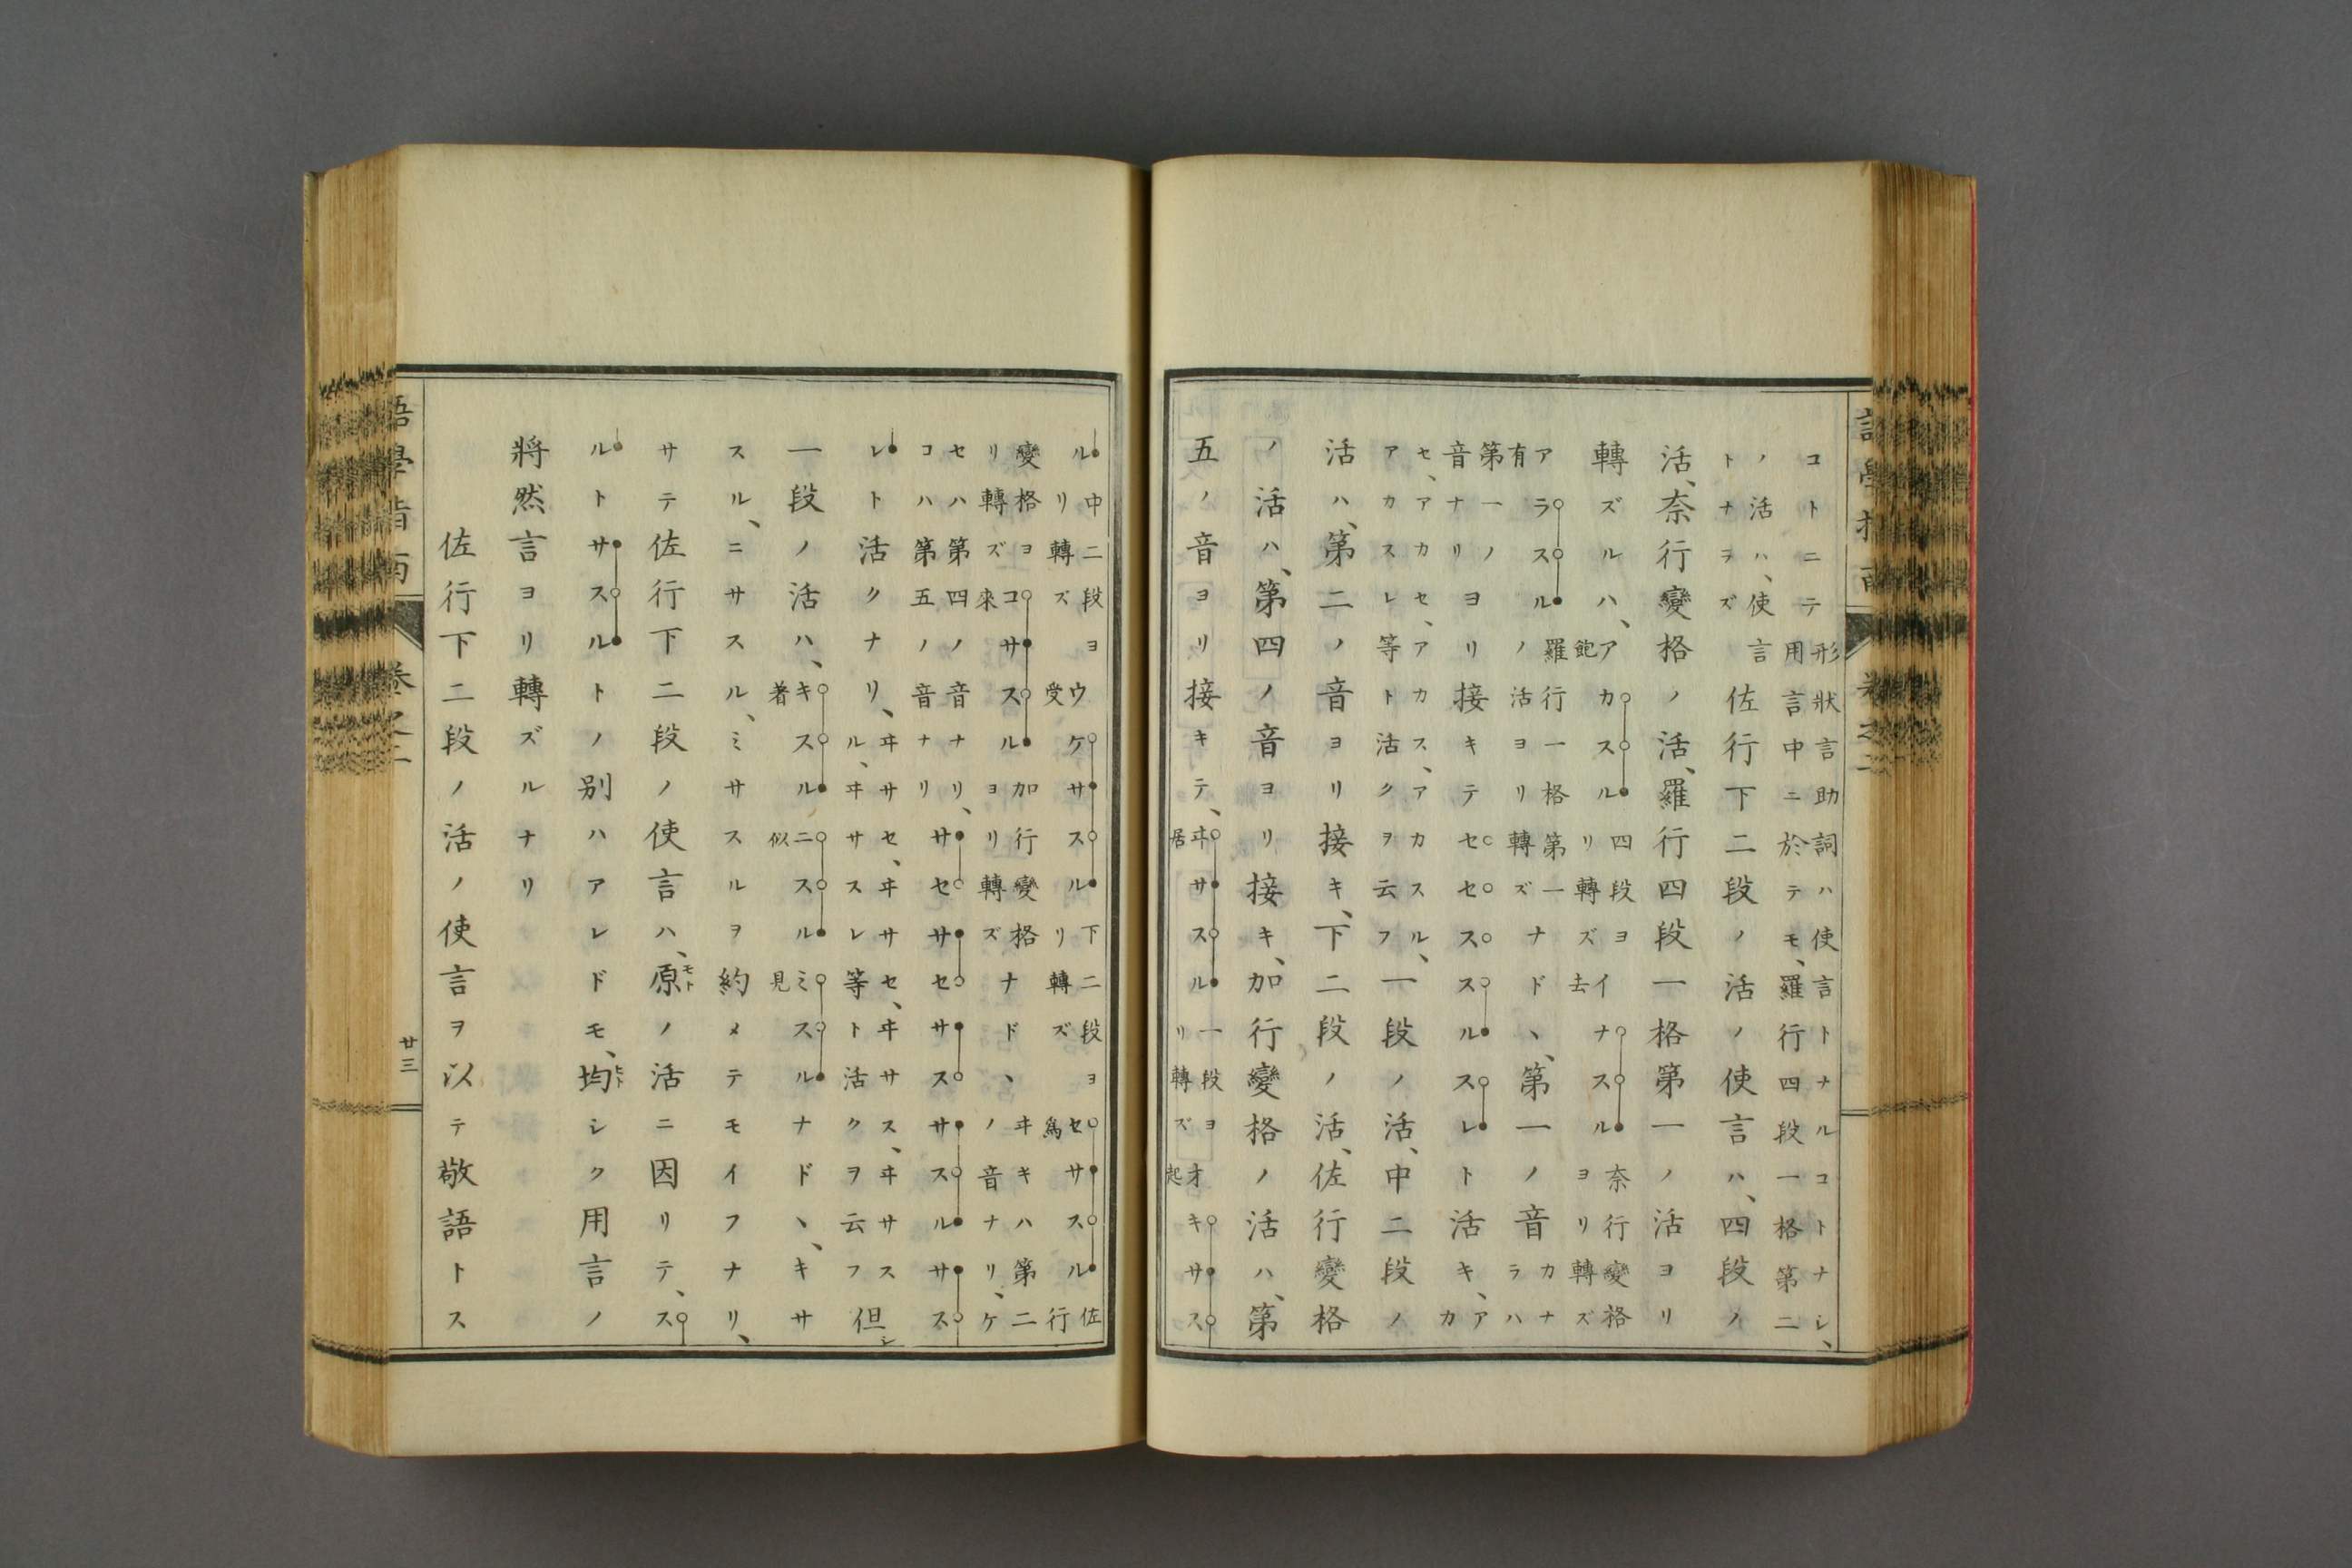 語學指南 卷之二
コトニテ形狀言助詞ハ使言トナルコトナシ、用言中ニ於テモ、羅行四段一格第二
ノ活ハ、使言トナラズ佐行下二段ノ活ノ使言ハ、四段ノ
活、奈行變格ノ活、羅行四段一格第一ノ活ヨリ
轉ズルハ、アカスル飽四段ヨリ轉ズイナスル去奈行變格ヨリ轉ズ
アラスル有羅行一格第一ノ活ヨリ轉ズナドヽ、第一ノ音カナラハ
第一ノ音ナリヨリ接キテセセススルスレト活キ、アカ
セ、アカセ、アカス、アカスル、アカスレ等ト活クヲ云フ一段ノ活、中二段ノ
活ハ、第二ノ音ヨリ接キ、下二段ノ活、佐行變格
ノ活ハ、第四ノ音ヨリ接キ、加行變格ノ活ハ、第
五ノ音ヨリ接キテ、ヰサスル居一段ヨリ轉ズオキサス起
ル中二段ヨリ轉ズウケサスル受下二段ヨリ轉ズセサスル爲佐行
變格ヨリ轉ズコサスル來加行變格ヨリ轉ズナドヽヰキハ第二ノ音ナリ、ケ
セハ第四ノ音ナリ、コハ第五ノ音ナリサセサセサスサスルサス
レト活クナリ、ヰサセ、ヰサセ、ヰサス、ヰサスル、ヰサスレ等ト活クヲ云フ但シ
一段ノ活ハ、キスル著ニスル似ミスル見ナドヽ、キサ
スル、ニサスル、ミサスルヲ約メテモイフナリ、
サテ佐行下二段ノ使言ハ、原モトノ活ニ因リテ、ス
ルトサスルトノ別ハアレドモ、均ヒトシク用言ノ
將然言ヨリ轉ズルナリ
佐行下二段ノ活ノ使言ヲ以テ敬語トス
語學指南 卷之二 廿三